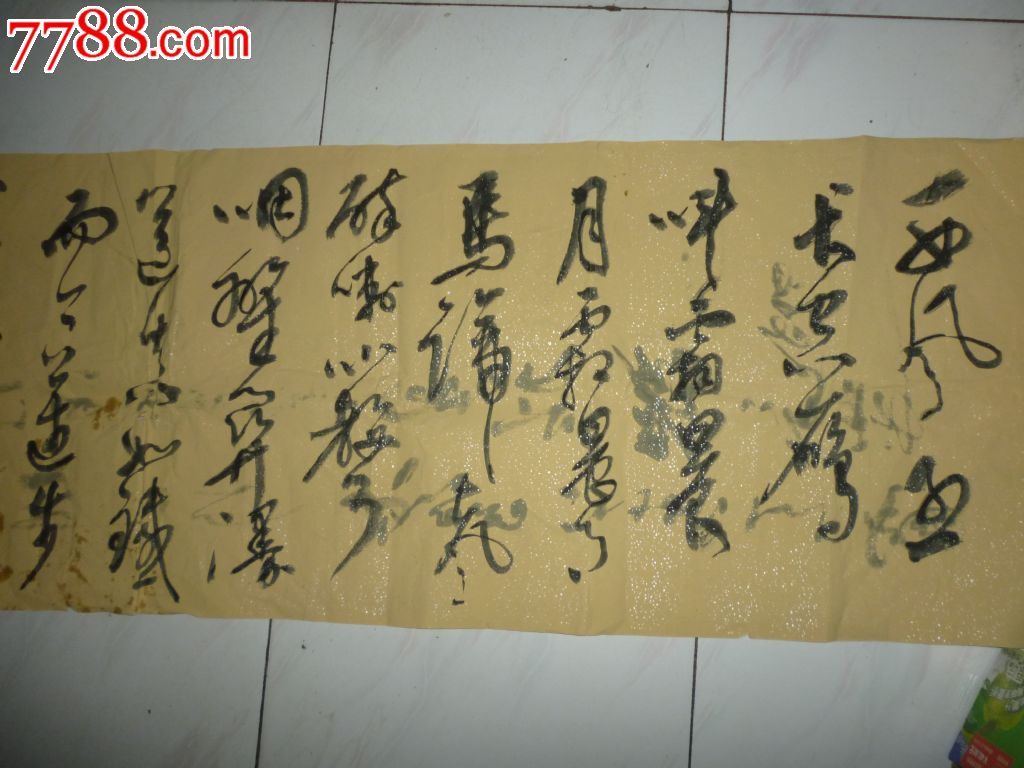 7788.com
西风烈
长空雁
叫霜晨
月霜晨月
馬蹄声
碎喇叭声
咽雄关漫
道真如鐵
而今迈步